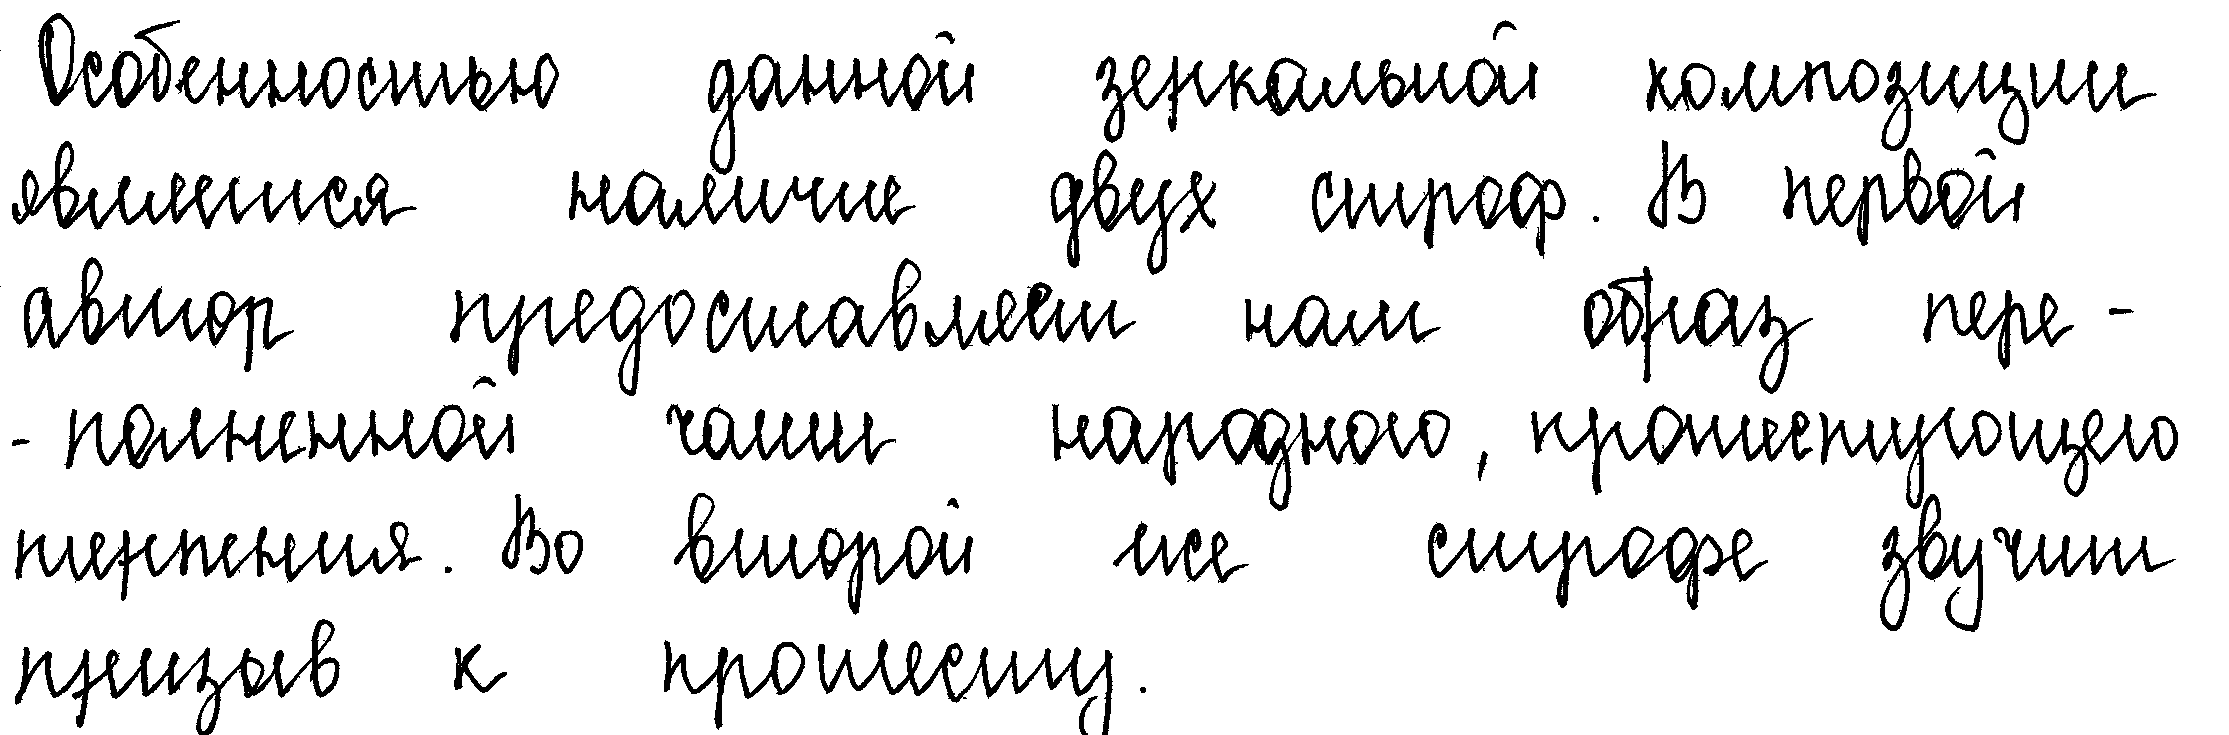 Особенностью данной зеркальной композиции
является наличие двух строф. В первой
автор предоставляет нам образ пере-
-полненной чаши народного, протестующего
терпения. Во второй же строфе звучит
призыв к протесту.